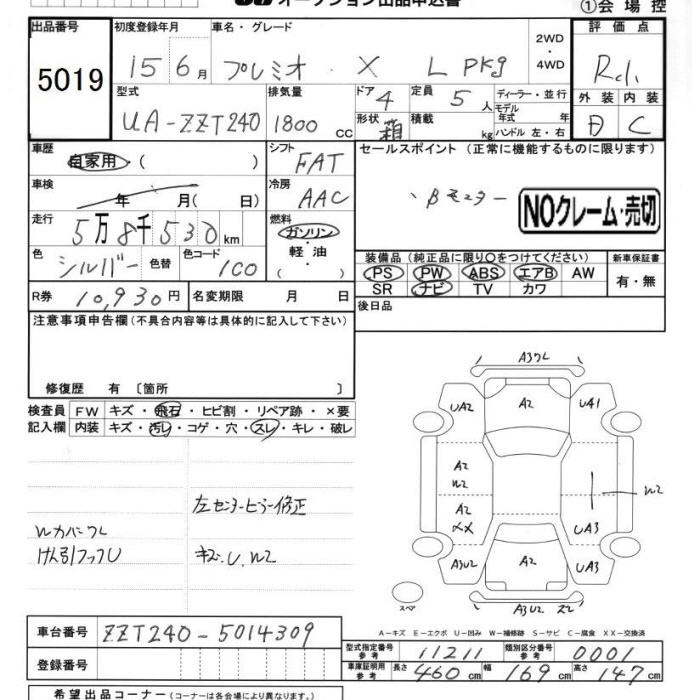 オークション出品申込書
①会場控
出品番号 初度登録年月 車名・グレード 2WD・4WD 評価点
5019 15 6月 プレミオ ・ X L PKg Rd.
型式 排気量 ドア 4 定員 5人 ディーラー・並行 外装 内装
UA-ZZT240 1800 CC 形状 箱 積載 kg モデル年式 年 ハンドル 左・右 C
車歴 シフト セールスポイント (正常に機能するものに限ります)
自家用・( ) FAT
車検 年 月(日) 冷房 AAC
NOクレーム・売切
走行 5万8千530km 燃料 ガソリン・軽油・( )
色 シルバー 色替 色コード 1C0
装備品 (純正品に限り○をつけてください) 新車保証書
PS PW ABS エアB AW 有・無
SR ナビ TV カワ
R券 10,930円 名変期限 月 日 後日品
注意事項申告欄(不具合内容等は具体的に記入して下さい)
修復歴 有〔箇所 〕
検査員 FW キズ・飛石・ヒビ割・リペア跡・×要
記入欄 内装 キズ・汚レ・コゲ・穴・スレ・キレ・破レ
左センターピラー修正
Wカバーワレ
けん引フックU キズ、U、W2
A3ワレ
UA2 A2 U41
A2
W2 W2
A2
XX UA3
A3U2 A2 UA3
スペア A3U2 ズレ
A-キズ E-エクボ U-凹み W-補修跡 S-サビ C-腐食 XX-交換済
車台番号 ZZT240-5014309
型式指定番号 参考 11211 類別区分番号 参考 0001
登録番号
車庫証明用 参考 長さ 460cm 幅 169cm 高さ 147cm
希望出品コーナー (コーナーは各会場により異なります。)